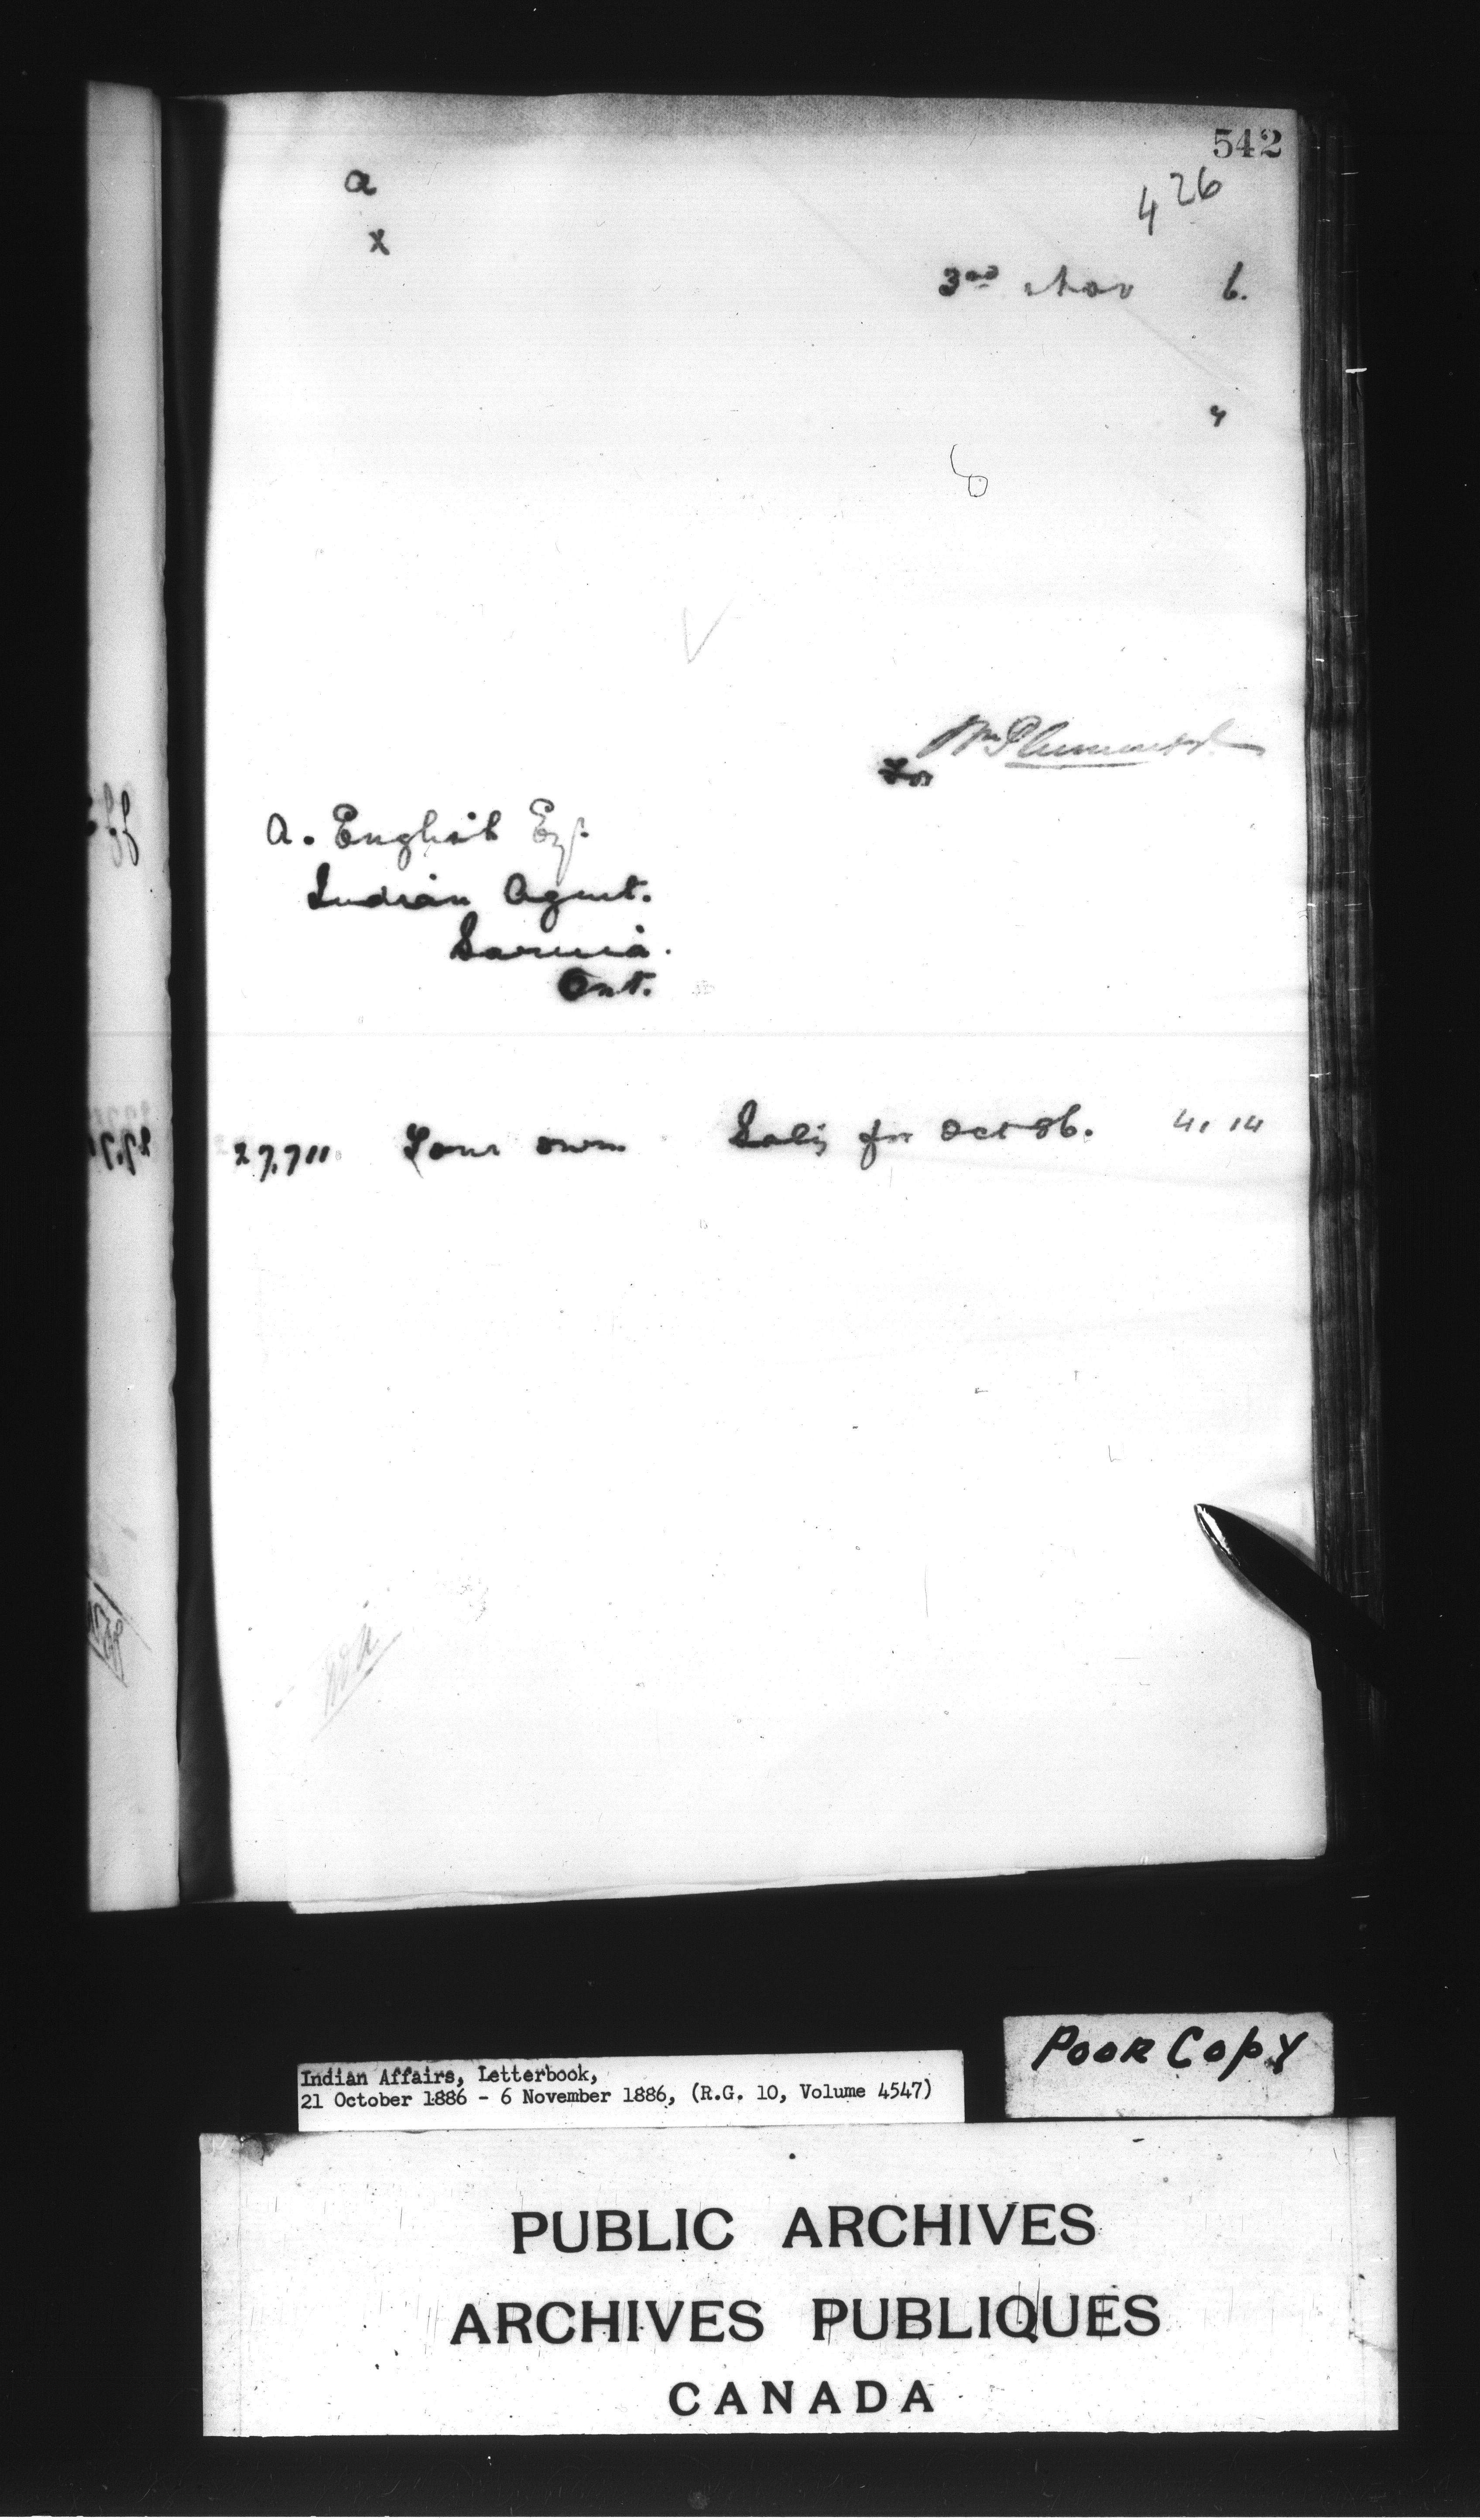 542
a
426
x
3rd Nov 6.
Wm Plummer
For
A. English Esq.
Indian Agent.
Sarnia.
Ont.
27,711 Your own Saly for Oct 86. 41 14
Poor Copy
Indian Affairs, Letterbook,
21 October 1886 - 6 November 1886, (R.G. 10, Volume 4547)
PUBLIC ARCHIVES
ARCHIVES PUBLIQUES
CANADA